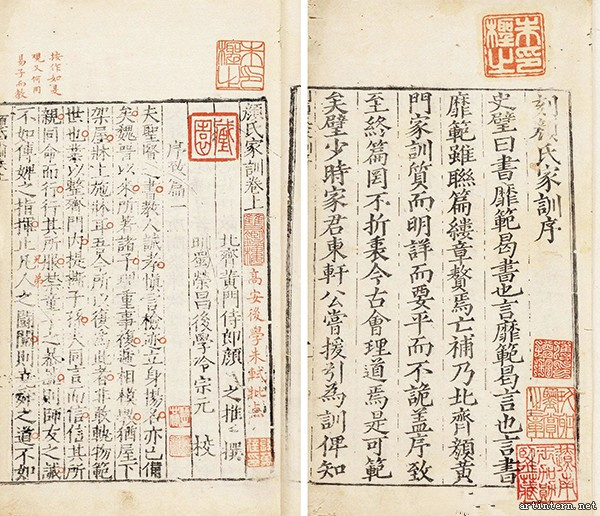 刻顏氏家訓序
史璧曰書靡範曷書也言靡範曷言也言書
靡範雖聯篇縷章贅焉亡補乃北齊顏黃
門家訓質而明詳而要平而不詭蓋序致
至終篇罔不折衷今古會理道焉是可範
矣璧少時家君東軒公嘗援引為訓俾知
顏氏家訓卷上
高安後學朱軾批點
北齊黃門侍郎顏之推 撰
明蜀榮昌後學冷宗元 校
序致篇一
夫聖賢之書教人誠孝慎言檢迹立身揚名亦已備
矣魏晉以來所著諸子理重事複遞相模斆猶屋下
架屋牀上施牀耳吾今所以復為此者非敢軌物範
世也業以整齊門內提撕子孫夫同言而信信其所
親同命而行行其所服禁童子之暴謔則師友之誡
不如傅婢之指揮止凡人之鬭鬩則堯舜之道不如
兄弟
觀又何用
易子而教
artintern.net